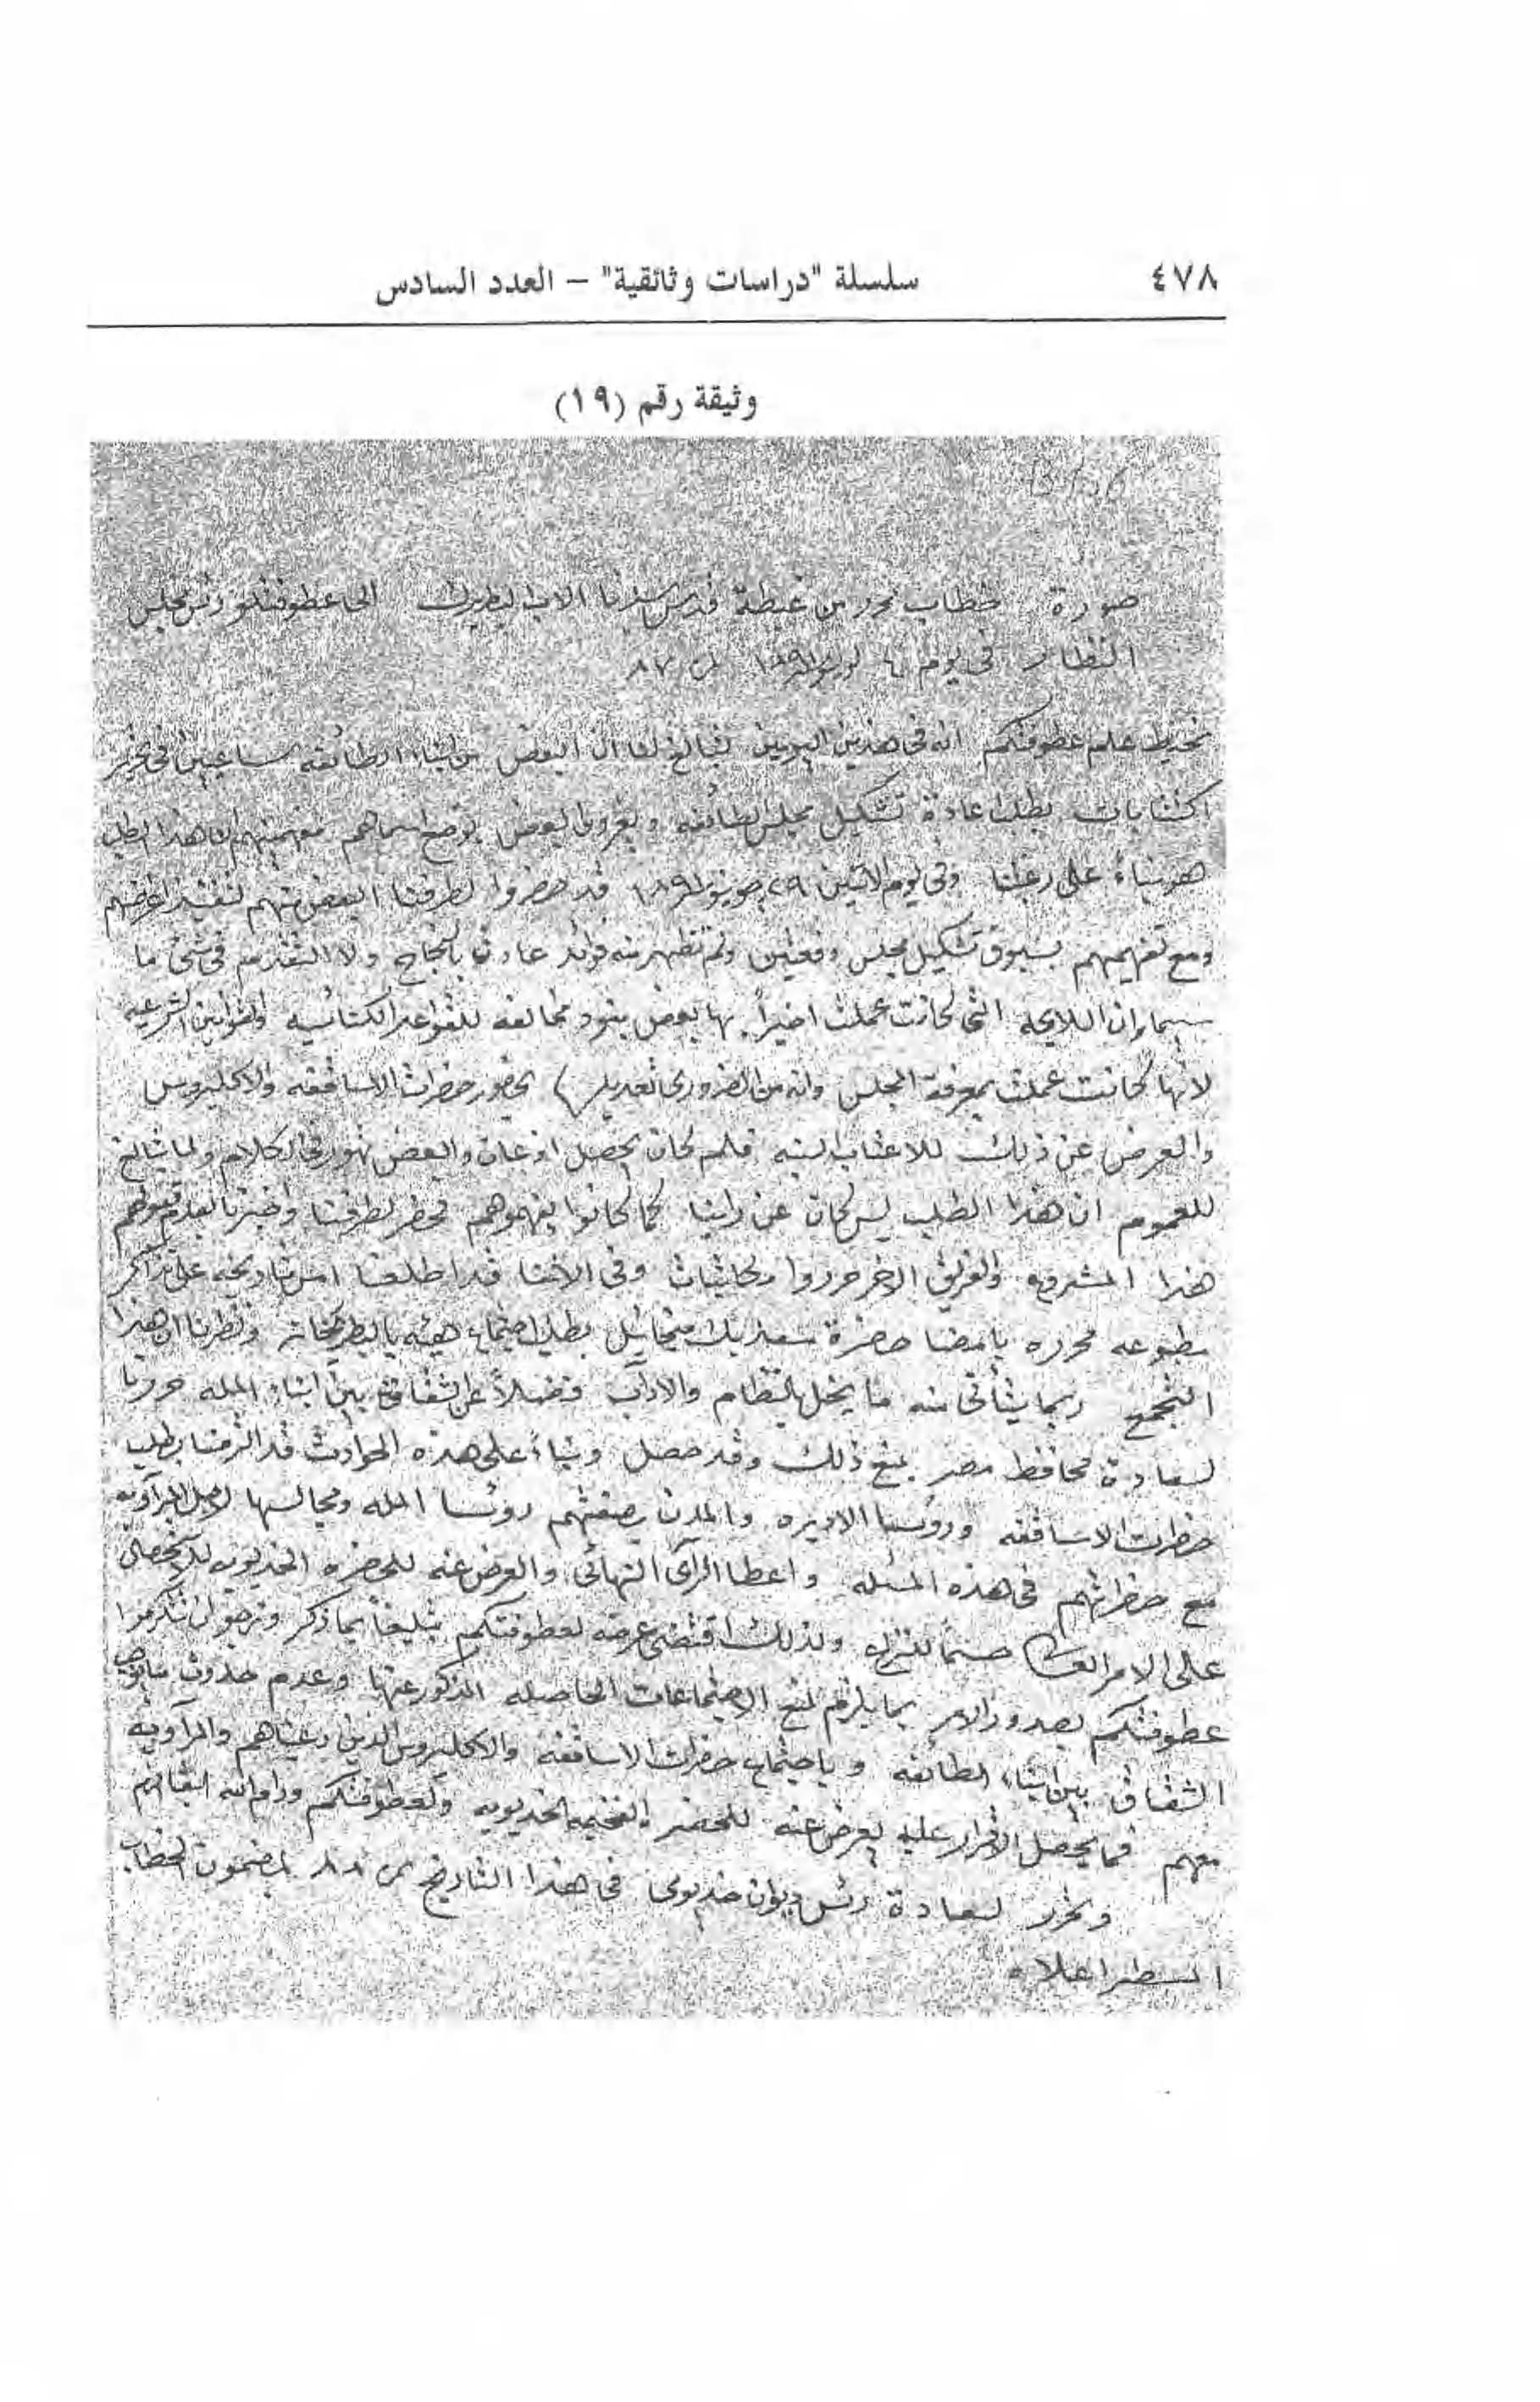 ٤٧٨
سلسلة "دراسات وثائقية" – العدد السادس
وثيقة رقم (١٩)
صورة خطاب تحرر من غبطة قدس سيدنا الاب البطريرك الى عطوفتلو رئيس مجلس
النظار في يوم يوليو ١٨٩١ ٨٧
نحيط علم عطوفتكم انه في هذين اليومين تبالغ لنا ان البعض من ابناء الطائفه ساعيين في تحرير
اكتتابات بطلب اعادة تشكيل مجلس لطائفه ويغروا البعض بوضع اسماهم مفهمينهم ان هذا الطلب
هو بناءً على رغبتنا وفي يوم الاثنين ٢٩ يونيو ١٨٩١ قد حضروا لطرفنا البعض منهم لتنفيذ اغرضهم
ومع تفهيمهم بسبوق تشكيل مجلس دفعتين ولم تظهر منه فوائد عادت بالنجاح ولا التقدم في شئ ما
سيما وان اللايحه التى كانت عملت اخيراً بها بعض بنود مخالفه للقواعد الكنائسيه والقوانين الشرعيه
لانها كانت عملت بمعرفة المجلس وانه من الضرورى تعديلها بحضور حضرات الاساقفه والاكليروس
والعرض عن ذلك للاعتاب السنيه فلم كان يحصل اذعان والبعض تهور في الكلام ولما تبالغ
للعموم ان هذا الطلب ليس كان عن راينا كما كانوا يفهموهم فحضر لطرفنا واخبرنا بعدم قبولهم
هذا المشروع والفريق الاخر حرروا مكاتبات وفي الاثنا قد اطلعنا امس تاريخه على تذاكر
مطبوعه محرره بامضا حضرة سعد بك ميخائيل بطلب اجتماع هيئه بالبطركخانه ونظرنا ان هذا
التجمع ربما يتأتى منه ما يخل بالنظام والآداب فضلاً عن الشقاق بين ابناء المله حررنا
لسعادة محافظ مصر بمنع ذلك وقد حصل وبناءً على هذه الحوادث قد الزمنا بطلب
حضرات الاساقفه ورؤسا الاديره والمدن بصفتهم روسا المله ومجالسها لاجل المرآويه
مع حضراتهم في هذه المسئله واعطا الرأى النهائى والعرض عنه للحضره الخديويه للتحصل
على الامر العالى حسماً للنزاع ولذلك اقتضى عرضه لعطوفتكم تبليغاً بما ذكر ونرجو ان تتكرموا
عطوفتكم بصدور الامر بما يلزم لمنع الاجتماعات الحاصله المذكور عنها وعدم حدوث ما يوجب
الشقاق بين ابناء الطائفه وباجتماع حضرات الاساقفة والاكليروس الذين دعيناهم والمرآويه
معهم فما يحصل الاقرار عليه يعرض عنه للحضره الفخيمه الخديويه ولعطوفتكم ودام الله ابقاهم
وتحرر لسعادة رئيس ديوان خديوى في هذا التاريخ ٨٨ بمضمون الخطاب
المسطر اعلاه